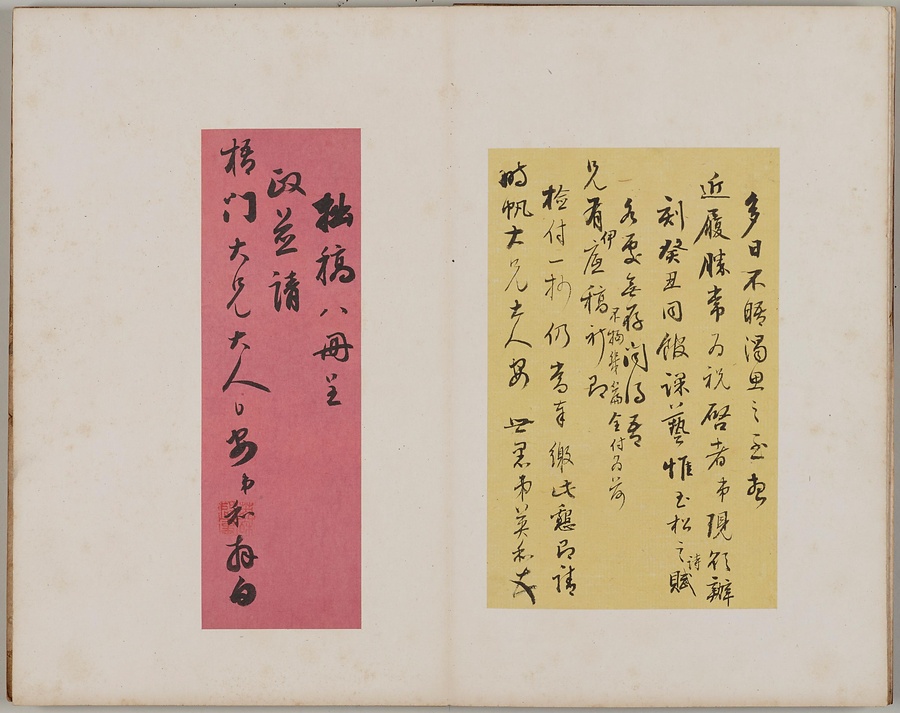 多日不晤渴思之至想
近履勝常為祝啓者弟現欲辦
刻癸丑同館課藝惟玉松之詩賦
各處無存聞得吾
兄有伊應稿祈即
不拘幾篇全付為荷
檢付一抄仍當奉繳此懇即請
時帆大兄大人安 世愚弟英和文
拙稿八冊呈
政並請
梧門大兄大人日安弟和拜白